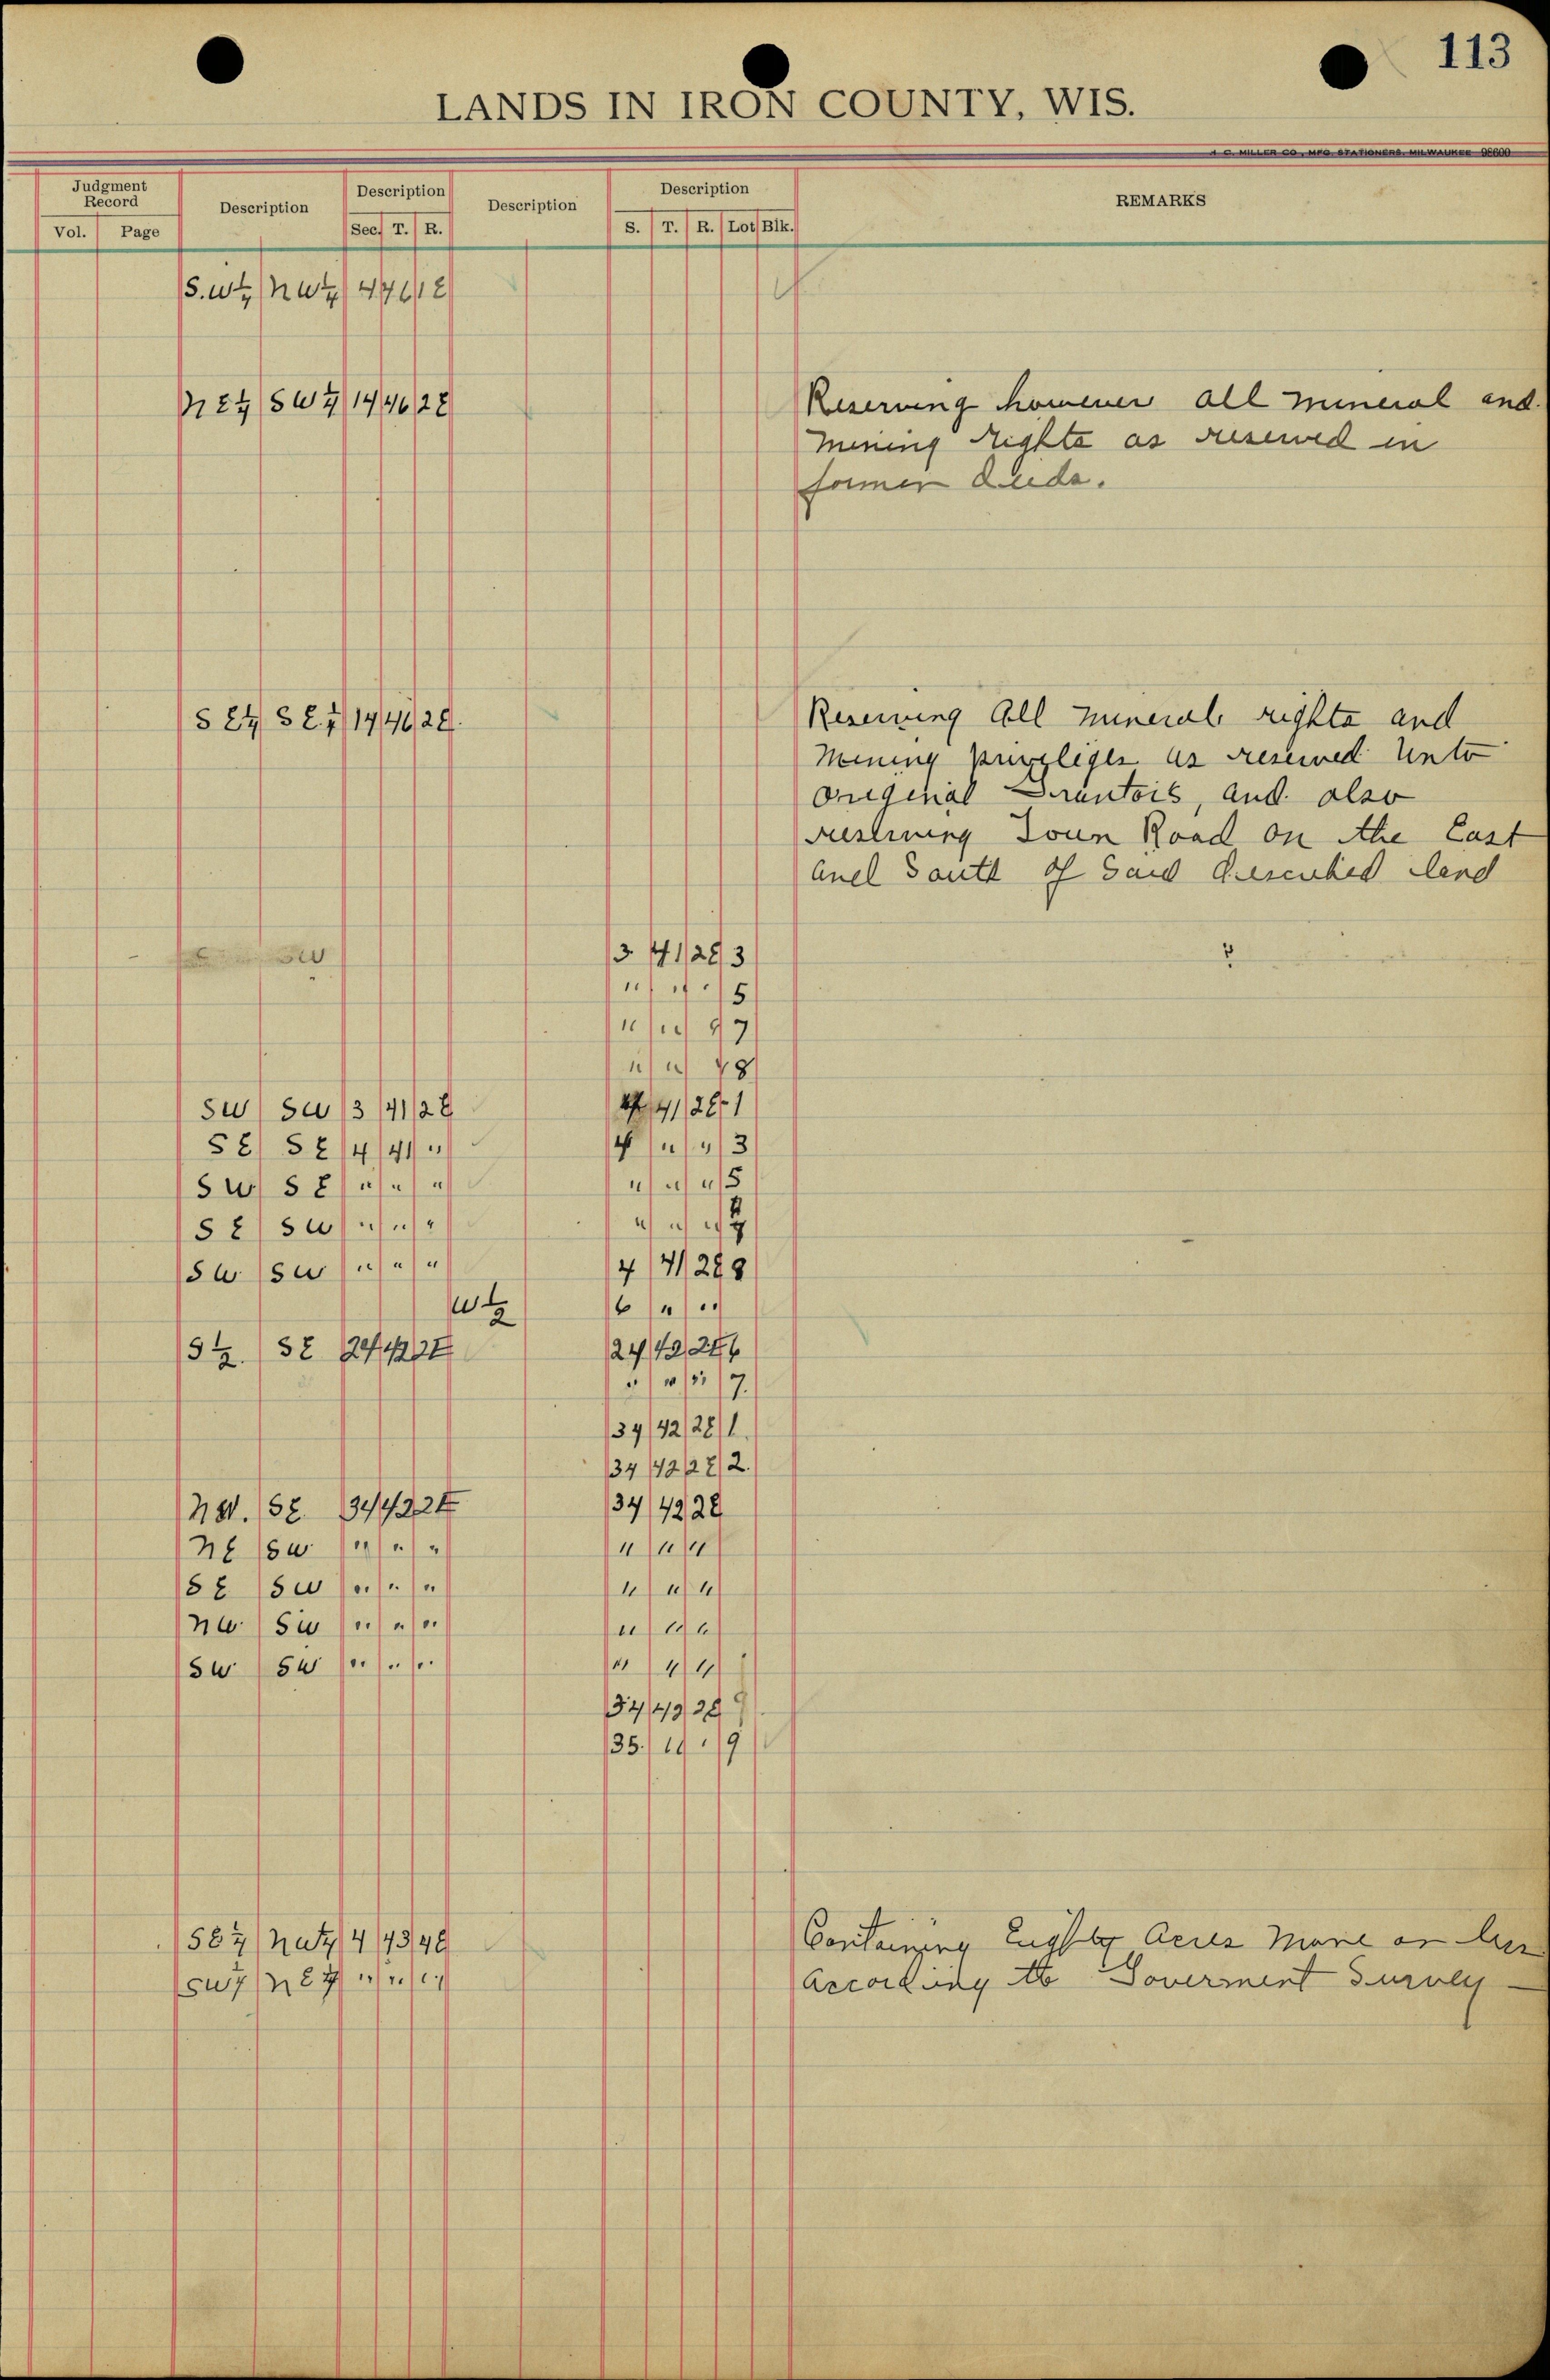 113
LANDS IN IRON COUNTY, WIS.
H. C. MILLER CO., MFG. STATIONERS, MILWAUKEE 98600
Judgment Record Description Description Description Description REMARKS
Vol. Page Sec. T. R. S. T. R. Lot Blk.
S.W¼ NW¼ 4 46 1E
NE¼ SW¼ 14 46 2E Reserving however all mineral and
mining rights as reserved in
former deeds.
SE¼ SE¼ 14 46 2E. Reserving All minerals rights and
Mining as reserved Unto
original Grantois, and also
reserving Town Road on the East
and South of Said described land
3 41 2E 3
" " " 5
" " " 7
" " " 8
SW SW 3 41 2E 4 41 2E 1
SE SE 4 41 " 4 " " 3
SW SE " " " " " " 5
SE SW " " " " " "
SW SW " " " 4 41 2E 8
W½ 6 " "
S½. SE 24 42 2E 24 42 2E 6
" " " 7.
34 42 2E 1.
34 42 2E 2.
NW. SE. 34 42 2E 34 42 2E
NE SW " " " " " "
SE SW " " " " " "
NW SW " " " " " "
SW SW " " " " " "
34 42 2E 9
35. " " 9
SE¼ NW¼ 4 43 4E Containing Eighty Acres More or less
SW¼ NE¼ " " " According to Goverment Survey —